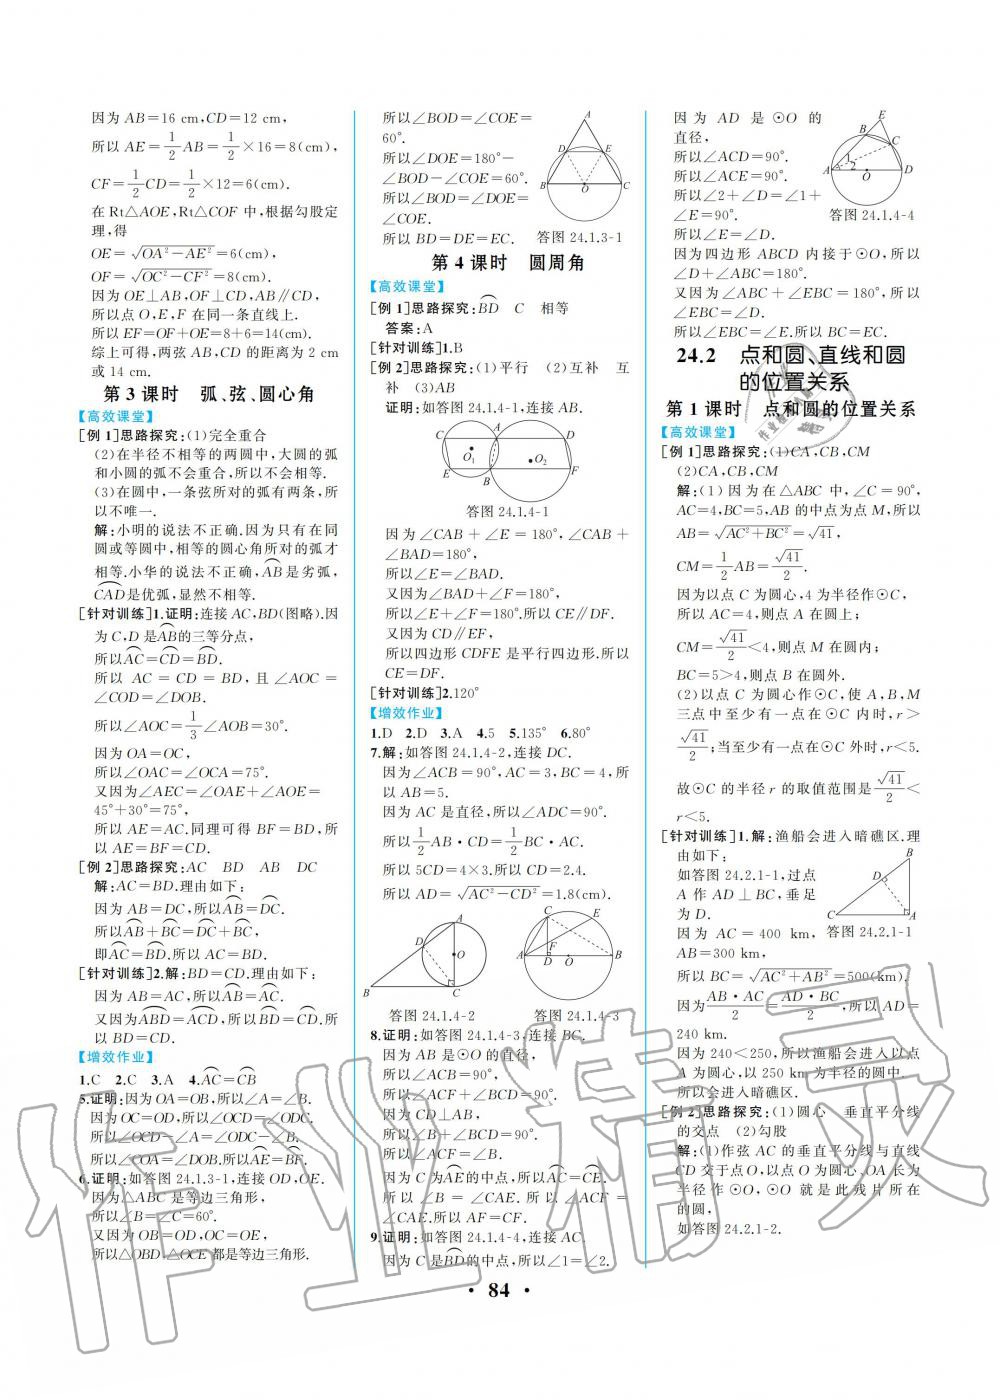 因为 AB=16 cm,CD=12 cm,
所以 AE=1/2AB=1/2×16=8(cm).
CF=1/2CD=1/2×12=6(cm).
在 Rt△AOE,Rt△COF 中,根据勾股定
理,得
OE=√(OA²-AE²)=6(cm),
OF=√(OC²-CF²)=8(cm).
因为 OE⊥AB,OF⊥CD,AB∥CD,
所以点 O,E,F 在同一条直线上.
所以 EF=OF+OE=8+6=14(cm).
综上可得,两弦 AB,CD 的距离为 2 cm
或 14 cm.
第 3 课时 弧、弦、圆心角
【高效课堂】
[例 1]思路探究:(1)完全重合
(2)在半径不相等的两圆中,大圆的弧
和小圆的弧不会重合,所以不会相等.
(3)在圆中,一条弦所对的弧有两条,所
以不唯一.
解:小明的说法不正确.因为只有在同
圆或等圆中,相等的圆心角所对的弧才
相等.小华的说法不正确,AB是劣弧,
CAD是优弧,显然不相等.
[针对训练]1.证明:连接 AC,BD(图略).因
为 C,D 是AB的三等分点,
所以AC=CD=BD.
所以 AC = CD = BD,且 ∠AOC =
∠COD=∠DOB.
所以∠AOC=1/3∠AOB=30°.
因为 OA=OC,
所以∠OAC=∠OCA=75°.
又因为∠AEC=∠OAE+∠AOE=
45°+30°=75°,
所以 AE=AC.同理可得 BF=BD,所
以 AE=BF=CD.
[例 2]思路探究:AC BD AB DC
解:AC=BD.理由如下:
因为 AB=DC,所以AB=DC.
所以AB+BC=DC+BC,
即AC=BD.所以 AC=BD.
[针对训练]2.解:BD=CD.理由如下:
因为 AB=AC,所以AB=AC.
又因为ABD=ACD,所以BD=CD.所
以 BD=CD.
【增效作业】
1.C 2.C 3.A 4.AC=CB
5.证明:因为 OA=OB,所以∠A=∠B.
因为 OC=OD,所以∠OCD=∠ODC.
所以∠OCD-∠A=∠ODC-∠B.
所以∠COA=∠DOB.所以AE=BF.
6.证明:如答图 24.1.3-1,连接 OD,OE.
因为△ABC 是等边三角形,
所以∠B=∠C=60°.
又因为 OB=OD,OC=OE,
所以△OBD,△OCE 都是等边三角形.
所以∠BOD=∠COE=
60°.
所以∠DOE=180°-
∠BOD-∠COE=60°.
所以∠BOD=∠DOE=
∠COE.
所以 BD=DE=EC.
A
D E
B O C
答图 24.1.3-1
第 4 课时 圆周角
【高效课堂】
[例 1]思路探究:BD C 相等
答案:A
[针对训练]1.B
[例 2]思路探究:(1)平行 (2)互补 互
补 (3)AB
证明:如答图 24.1.4-1,连接 AB.
C A D
O₁ O₂
E B F
答图 24.1.4-1
因为∠CAB + ∠E = 180°,∠CAB +
∠BAD=180°,
所以∠E=∠BAD.
又因为∠BAD+∠F=180°,
所以∠E+∠F=180°.所以 CE∥DF.
又因为 CD∥EF,
所以四边形 CDFE 是平行四边形.所以
CE=DF.
[针对训练]2.120°
【增效作业】
1.D 2.D 3.A 4.5 5.135° 6.80°
7.解:如答图 24.1.4-2,连接 DC.
因为∠ACB=90°,AC=3,BC=4,所
以 AB=5.
因为 AC 是直径,所以∠ADC=90°.
所以1/2AB·CD=1/2BC·AC.
所以 5CD=4×3.所以 CD=2.4.
所以 AD=√(AC²-CD²)=1.8(cm).
A
D
O
B C
答图 24.1.4-2
C E
F
A D O B
答图 24.1.4-3
8.证明:如答图 24.1.4-3,连接 BC.
因为 AB 是⊙O 的直径,
所以∠ACB=90°,
即∠ACF+∠BCF=90°.
因为 CD⊥AB,
所以∠B+∠BCF=90°.
所以∠ACF=∠B.
因为 C 为AE的中点,所以AC=CE.
所以 ∠B = ∠CAE.所以 ∠ACF =
∠CAE.所以 AF=CF.
9.证明:如答图 24.1.4-4,连接 AC.
因为 C 是BD的中点,所以∠1=∠2.
因为 AD 是⊙O 的
直径,
所以∠ACD=90°.
所以∠ACE=90°.
所以∠2+∠D=∠1+
∠E=90°.
所以∠E=∠D.
E
B
C
1
2
A O D
答图 24.1.4-4
因为四边形 ABCD 内接于⊙O,所以
∠D+∠ABC=180°.
又因为∠ABC+∠EBC=180°,所以
∠EBC=∠D.
所以∠EBC=∠E.所以 BC=EC.
24.2 点和圆、直线和圆
的位置关系
第 1 课时 点和圆的位置关系
【高效课堂】
[例 1]思路探究:(1)CA,CB,CM
(2)CA,CB,CM
解:(1)因为在△ABC 中,∠C=90°,
AC=4,BC=5,AB 的中点为点 M,所以
AB=√(AC²+BC²)=√41,
CM=1/2AB=√41/2.
因为以点 C 为圆心,4 为半径作⊙C,
所以 AC=4,则点 A 在圆上;
CM=√41/2<4,则点 M 在圆内;
BC=5>4,则点 B 在圆外.
(2)以点 C 为圆心作⊙C,使 A,B,M
三点中至少有一点在⊙C 内时,r>
√41/2;当至少有一点在⊙C 外时,r<5.
故⊙C 的半径 r 的取值范围是√41/2<
r<5.
[针对训练]1.解:渔船会进入暗礁区.理
由如下:
如答图 24.2.1-1,过点
A 作 AD⊥BC,垂足
为 D.
因为 AC=400 km,
AB=300 km,
B
D
C A
答图 24.2.1-1
所以 BC=√(AC²+AB²)=500(km).
因为AB·AC/2=AD·BC/2,所以 AD=
240 km.
因为 240<250,所以渔船会进入以点
A 为圆心,以 250 km 为半径的圆中.
所以会进入暗礁区.
[例 2]思路探究:(1)圆心 垂直平分线
的交点 (2)勾股
解:(1)作弦 AC 的垂直平分线与直线
CD 交于点 O,以点 O 为圆心,OA 长为
半径作⊙O,⊙O 就是此残片所在
的圆,
如答图 24.2.1-2.
· 84 ·
作业精灵